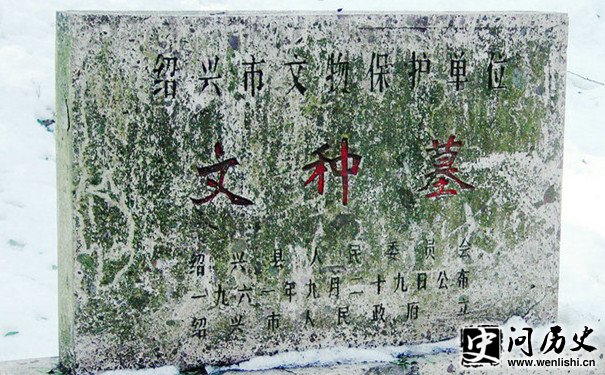 绍兴市文物保护单位
文种墓
绍兴县人民委员会
一九六二年九月二十九日公布
绍兴市人民政府立
史 问历史
www.wenlishi.cn